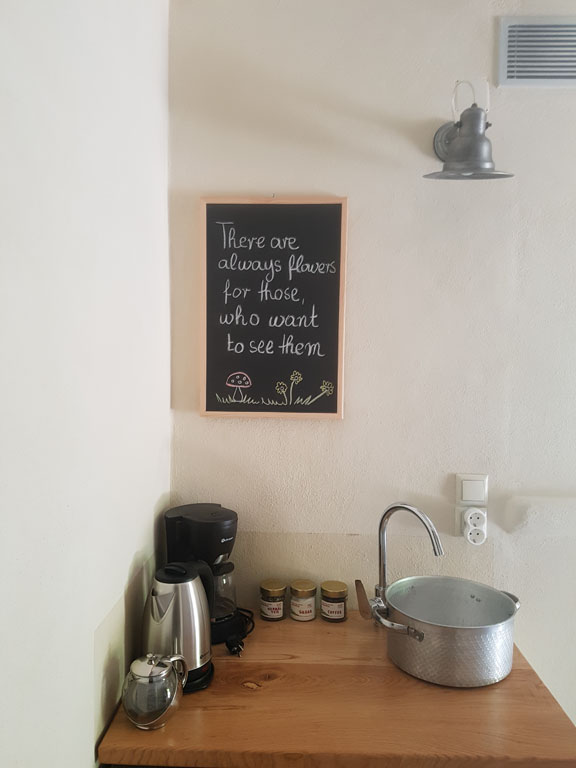 There are
always flowers
for those,
who want
to see them
HERBAL
TEA
SUGAR
COFFEE